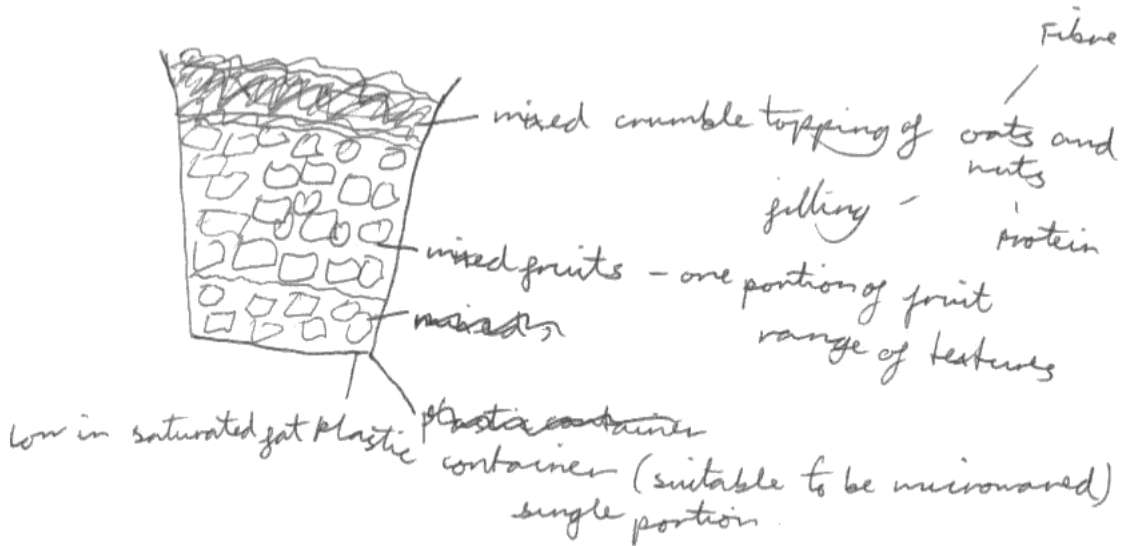 Fibre
mixed crumble topping of oats and
nuts
filling
Protein
mixed fruits - one portion of fruit
range of textures
mixed
plastic container
Low in saturated fat Plastic
container (suitable to be microwaved)
single portion